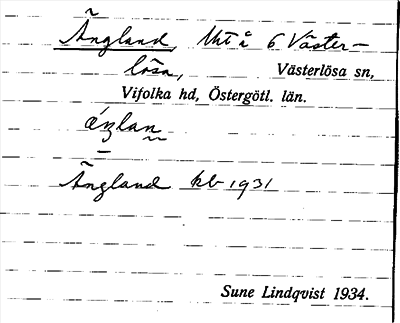 Ängland, Utt å 6 Väster-
lösa, Västerlösa sn,
Vifolka hd, Östergötl. län.
Ängland kb 1931
Sune Lindqvist 1934.